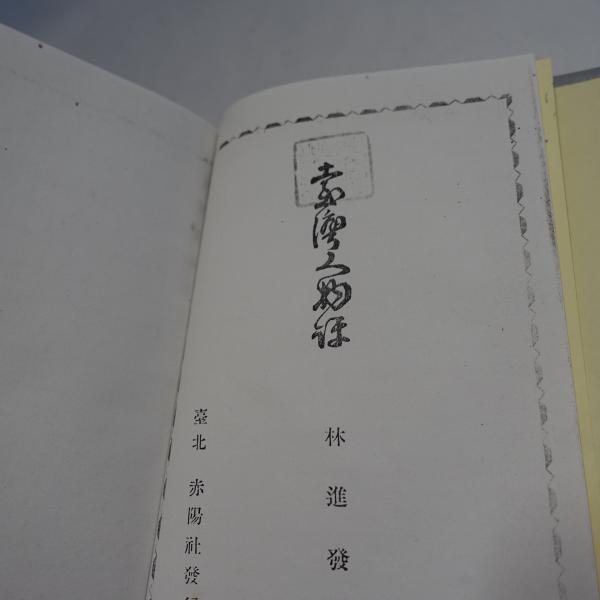 臺灣人物評
林進發
臺北 赤陽社發